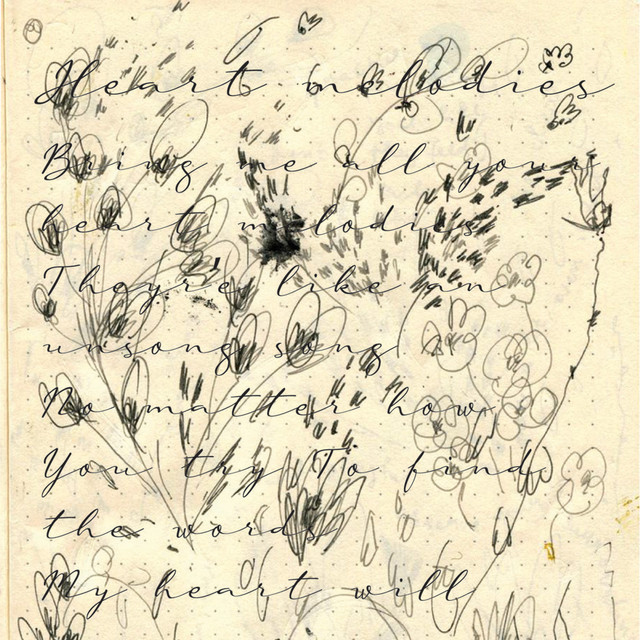 Heart melodies
Bring me all your
heart melodies
They're like an
unsong song
No matter how
You try To find
the words
My heart will